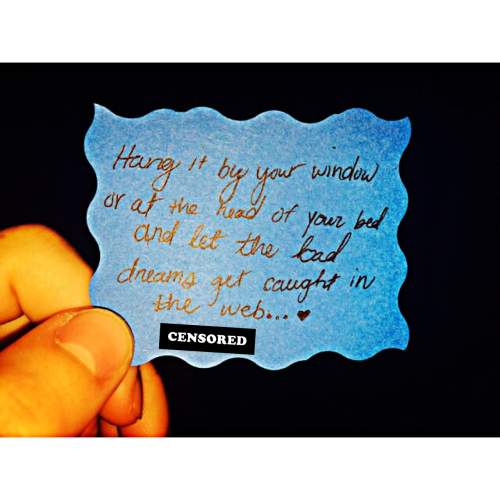 Hang it by your window
or at the head of your bed
and let the bad
dreams get caught in
the web... ♥
CENSORED